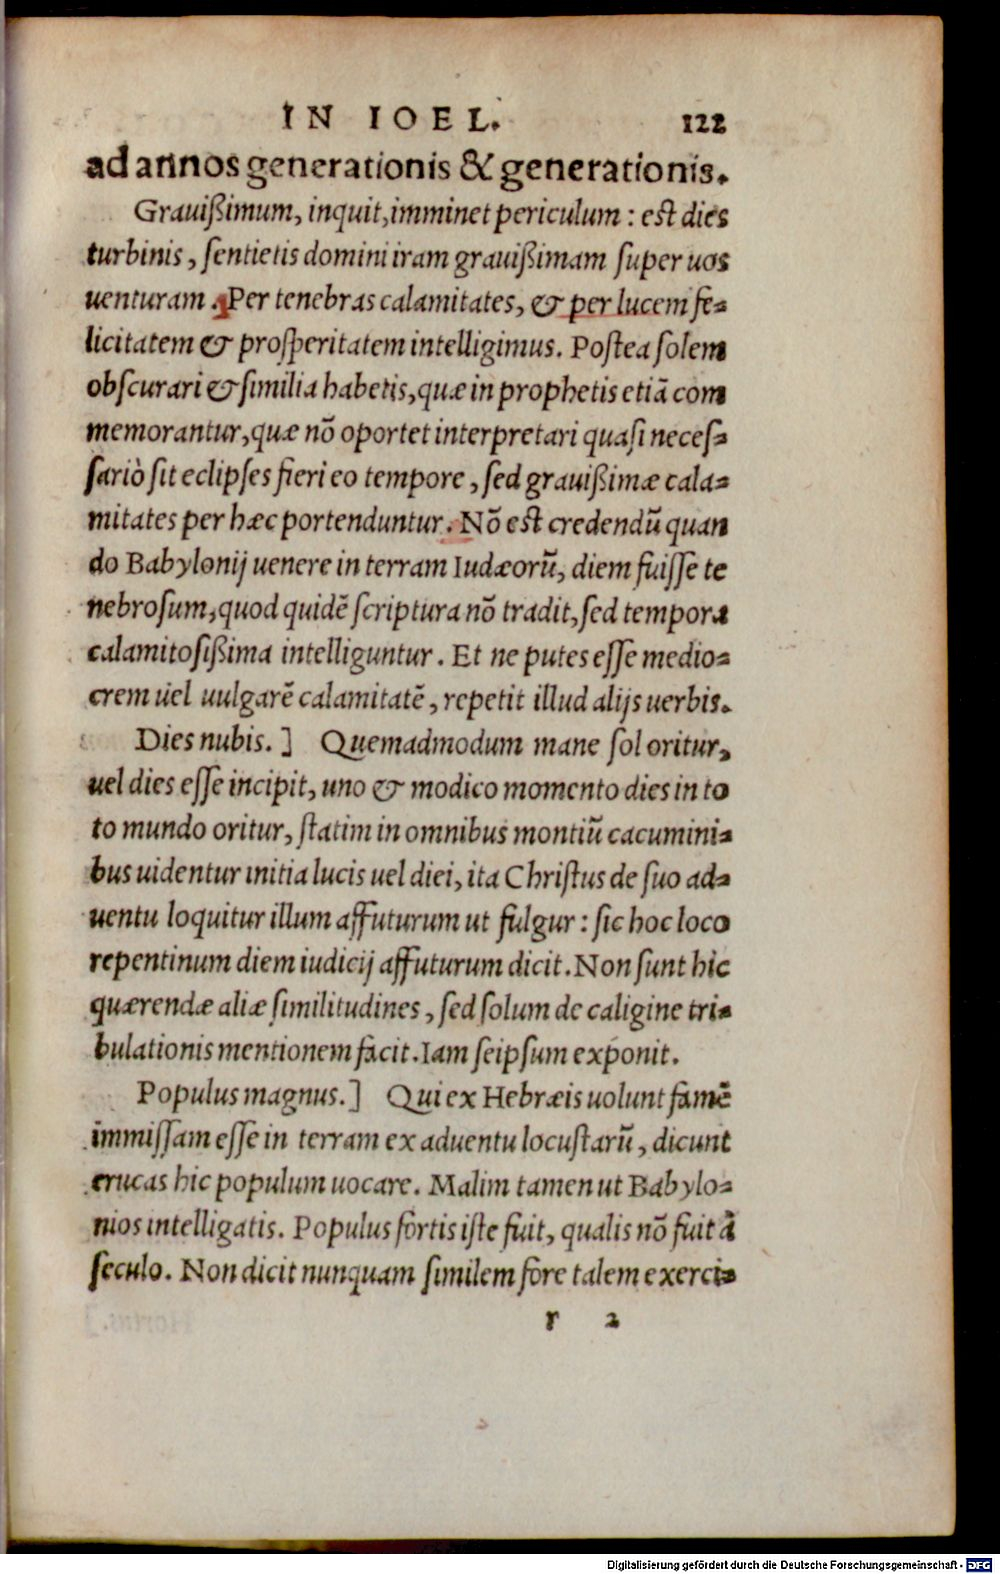 IN IOEL. 122
ad annos generationis & generationis.
Grauißimum, inquit, imminet periculum : est dies
turbinis, sentietis domini iram grauißimam super uos
uenturam. Per tenebras calamitates, & per lucem fe-
licitatem & prosperitatem intelligimus. Postea solem
obscurari & similia habetis, quæ in prophetis etiã com
memorantur, quæ nõ oportet interpretari quasi neces-
sariò sit eclipses fieri eo tempore, sed grauißimæ cala-
mitates per hæc portenduntur. Nõ est credendũ quan
do Babylonij uenere in terram Iudæorũ, diem fuisse te
nebrosum, quod quidẽ scriptura nõ tradit, sed tempora
calamitosißima intelliguntur. Et ne putes esse medio-
crem uel uulgarẽ calamitatẽ, repetit illud alijs uerbis.
Dies nubis. ] Quemadmodum mane sol oritur,
uel dies esse incipit, uno & modico momento dies in to
to mundo oritur, statim in omnibus montiũ cacumini-
bus uidentur initia lucis uel diei, ita Christus de suo ad-
uentu loquitur illum affuturum ut fulgur : sic hoc loco
repentinum diem iudicij affuturum dicit. Non sunt hic
quærendæ aliæ similitudines, sed solum de caligine tri-
bulationis mentionem facit. Iam seipsum exponit.
Populus magnus. ] Qui ex Hebræis uolunt famẽ
immissam esse in terram ex aduentu locustarũ, dicunt
erucas hic populum uocare. Malim tamen ut Babylo-
nios intelligatis. Populus fortis iste fuit, qualis nõ fuit à
seculo. Non dicit nunquam similem fore talem exerci-
r 2
Digitalisierung gefördert durch die Deutsche Forschungsgemeinschaft - DFG